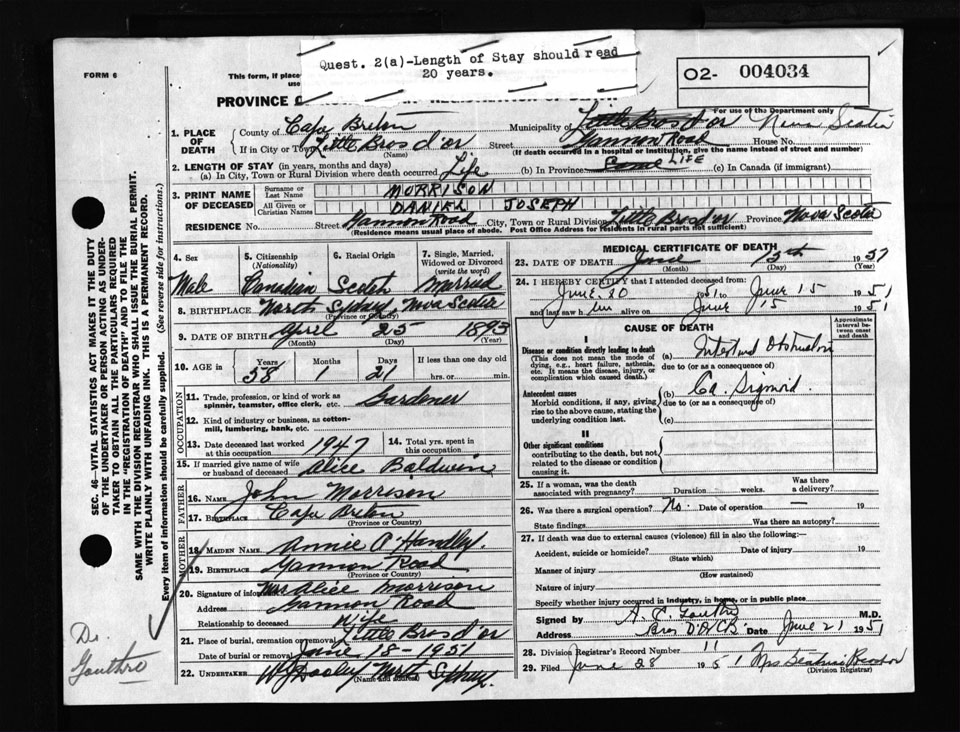 Quest. 2(a)-Length of Stay should read
20 years.
O2- 004034
FORM 6
This form, if place
use
For use of the Department only
PROVINCE
1. PLACE OF DEATH
County of Cape Breton
Municipality of Little Bras d'or Nova Scotia
If in City or Town Little Bras d'or (Name) Street Gannon Road House No.
(If death occurred in a hospital or institution, give the name instead of street and number)
2. LENGTH OF STAY (in years, months and days)
(a) In City, Town or Rural Division where death occurred Life (b) In Province LIFE (c) In Canada (if immigrant)
3. PRINT NAME OF DECEASED
Surname or Last Name MORRISON
All Given or Christian Names DANIEL JOSEPH
RESIDENCE No. Street Gannon Road City, Town or Rural Division Little Bras d'or Province Nova Scotia
(Residence means usual place of abode. Post Office Address for Residents in rural parts not sufficient)
4. Sex Male
5. Citizenship (Nationality) Canadian
6. Racial Origin Scotch
7. Single, Married, Widowed or Divorced (write the word) Married
8. BIRTHPLACE North Sydney, Nova Scotia
(Province or Country)
9. DATE OF BIRTH April 25 1893
(Month) (Day) (Year)
10. AGE in Years 58 Months 1 Days 21 If less than one day old
hrs. or min.
OCCUPATION
11. Trade, profession, or kind of work as spinner, teamster, office clerk, etc. Gardener
12. Kind of industry or business, as cotton-mill, lumbering, bank, etc.
13. Date deceased last worked at this occupation 1947
14. Total yrs. spent in this occupation
15. If married give name of wife or husband of deceased Alice Baldwin
FATHER
16. Name John Morrison
17. Birthplace Cape Breton
(Province or Country)
MOTHER
18. MAIDEN NAME Annie P. Handley.
19. BIRTHPLACE Gannon Road
(Province or Country)
20. Signature of informant Mrs Alice Morrison
Address Gannon Road
Relationship to deceased Wife
21. Place of burial, cremation or removal Little Bras d'or
Date of burial or removal June 18 - 1951
22. UNDERTAKER North Sydney.
(Name and address)
MEDICAL CERTIFICATE OF DEATH
23. DATE OF DEATH June 15th 1951
(Month) (Day) (Year)
24. I HEREBY CERTIFY that I attended deceased from:
June 10 1951 to June 15 1951
and last saw him alive on June 15 1951
CAUSE OF DEATH
Approximate interval between onset and death
I
Disease or condition directly leading to death
(This does not mean the mode of dying, e.g., heart failure, asthenia, etc. It means the disease, injury, or complication which caused death.)
(a)
due to (or as a consequence of)
Antecedent causes
Morbid conditions, if any, giving rise to the above cause, stating the underlying condition last.
(b) Ca. Sigmoid.
due to (or as a consequence of)
(c)
II
Other significant conditions
contributing to the death, but not related to the disease or condition causing it.
25. If a woman, was the death associated with pregnancy? Duration weeks. Was there a delivery?
26. Was there a surgical operation? No. Date of operation — 19
State findings Was there an autopsy?
27. If death was due to external causes (violence) fill in also the following:—
Accident, suicide or homicide? Date of injury 19
(State which)
Manner of injury
(How sustained)
Nature of injury
Specify whether injury occurred in industry, in home, or in public place
Signed by Gouthro M.D.
Address Bras D'Or C.B. Date June 21 1951
28. Division Registrar's Record Number 11
29. Filed June 28 1951 Mrs Beatrice
(Division Registrar)
SEC. 46—VITAL STATISTICS ACT MAKES IT THE DUTY
OF THE UNDERTAKER OR PERSON ACTING AS UNDER-
TAKER TO OBTAIN ALL THE PARTICULARS REQUIRED
IN THE "REGISTRATION OF DEATH" AND TO FILE THE
SAME WITH THE DIVISION REGISTRAR WHO SHALL ISSUE THE BURIAL PERMIT.
WRITE PLAINLY WITH UNFADING INK. THIS IS A PERMANENT RECORD.
Every item of information should be carefully supplied. (See reverse side for instructions.)
Dr.
Gouthro